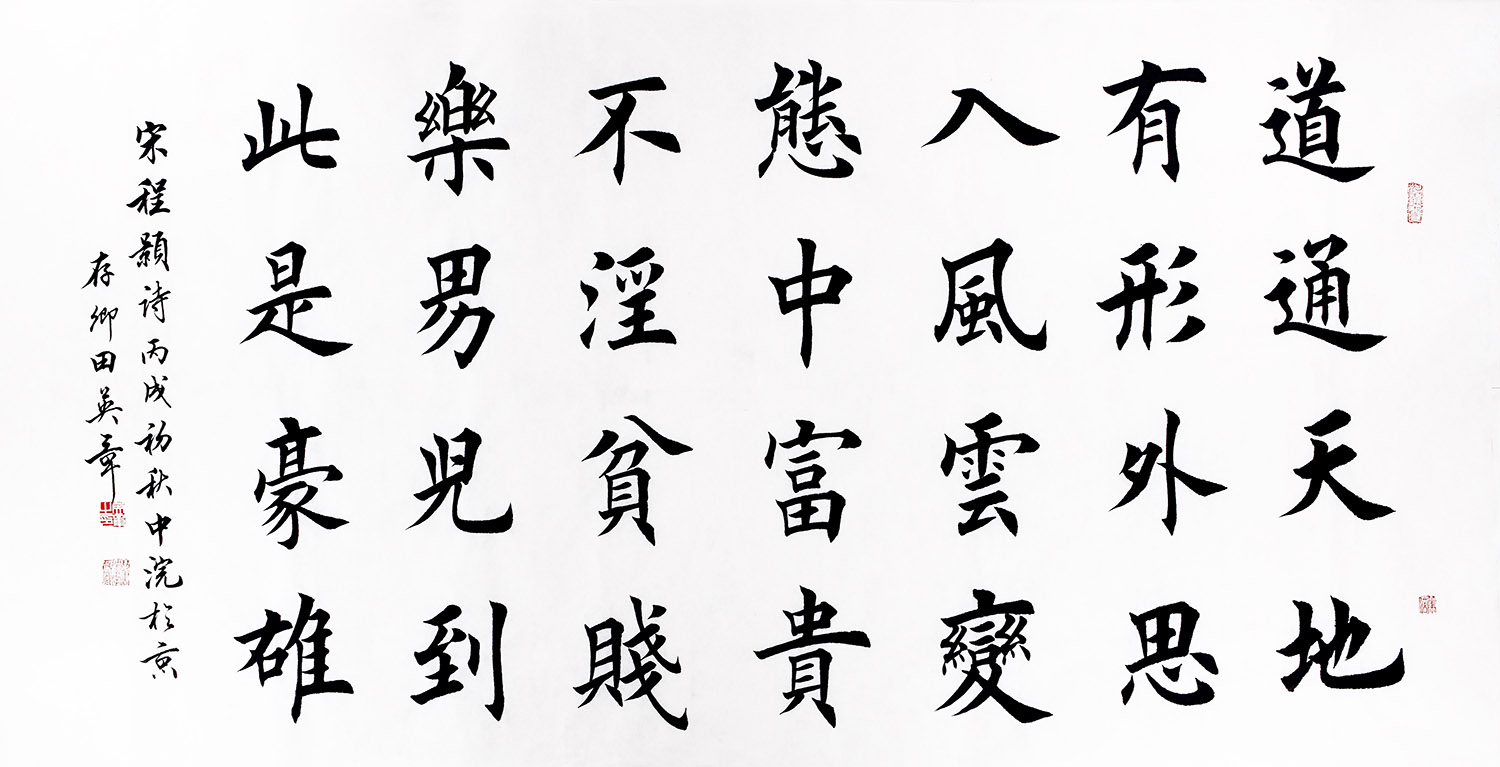 道通天地
有形外思
入風雲變
態中富貴
不淫貧賤
樂男兒到
此是豪雄
宋程顥詩丙戌初秋中浣於京
存卿田英章